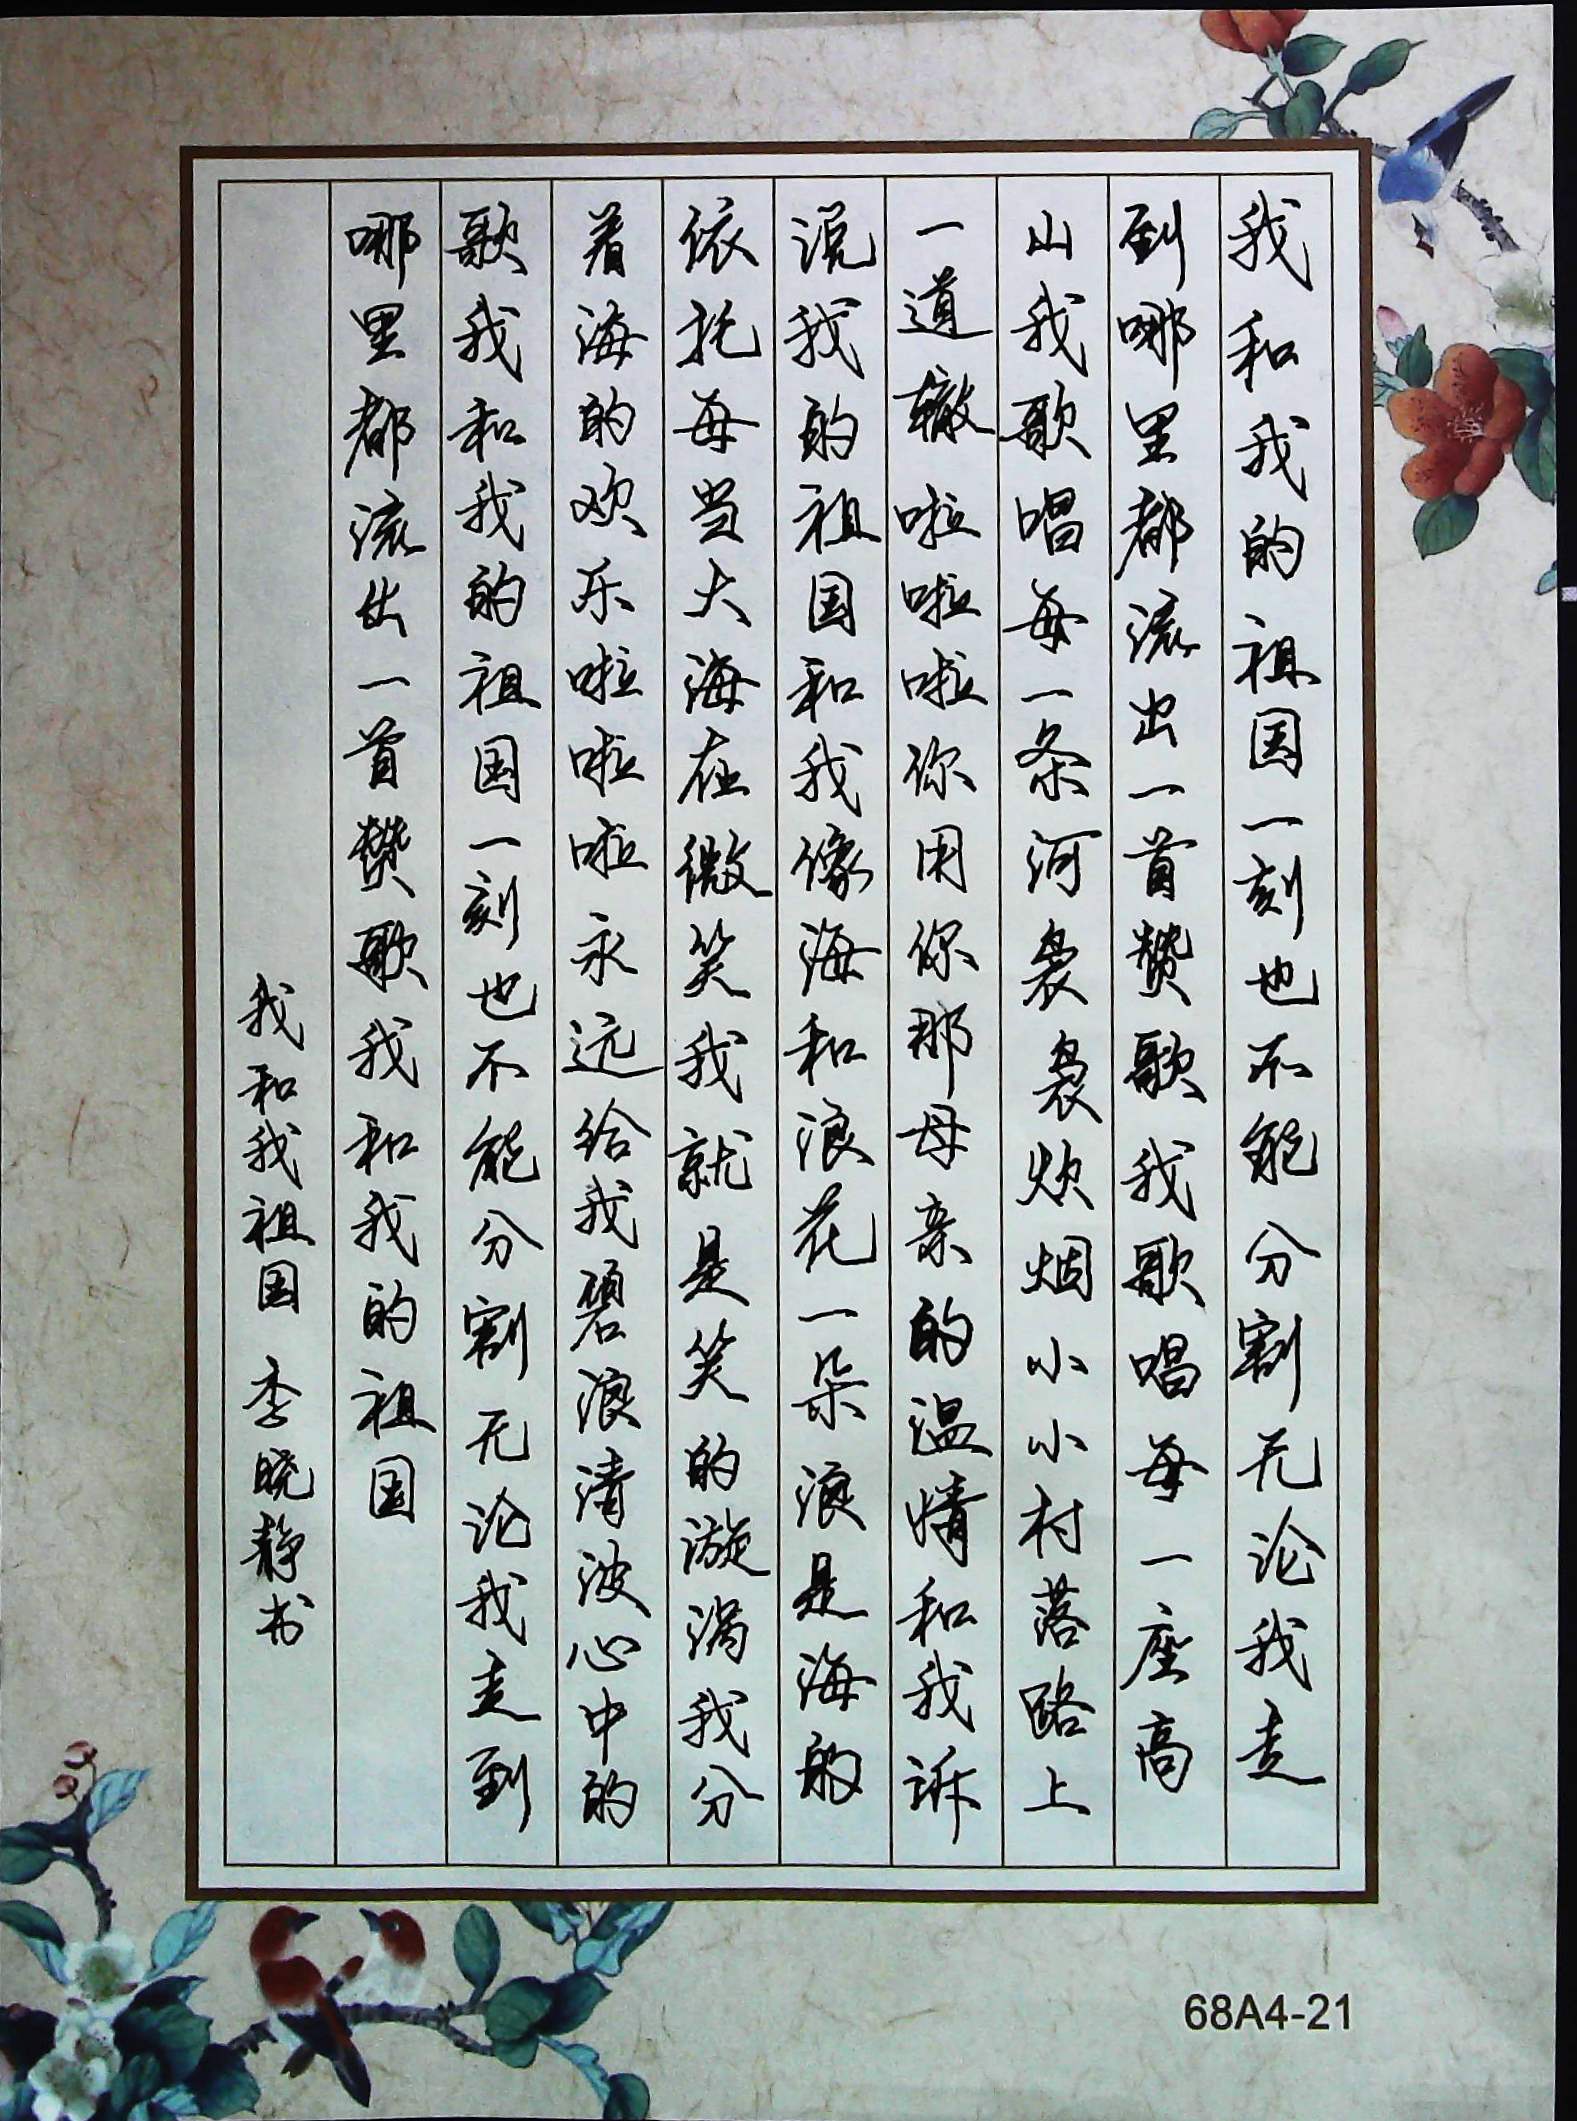 我和我的祖国一刻也不能分割无论我走
到哪里都流出一首赞歌我歌唱每一座高
山我歌唱每一条河袅袅炊烟小小村落路上
一道辙啦啦啦你用你那母亲的温情和我诉
说我的祖国和我像海和浪花一朵浪是海的
依托每当大海在微笑我就是笑的漩涡我分
着海的欢乐啦啦啦永远给我碧浪清波心中的
歌我和我的祖国一刻也不能分割无论我走到
哪里都流出一首赞歌我和我的祖国
我和我祖国 李晓静书
68A4-21